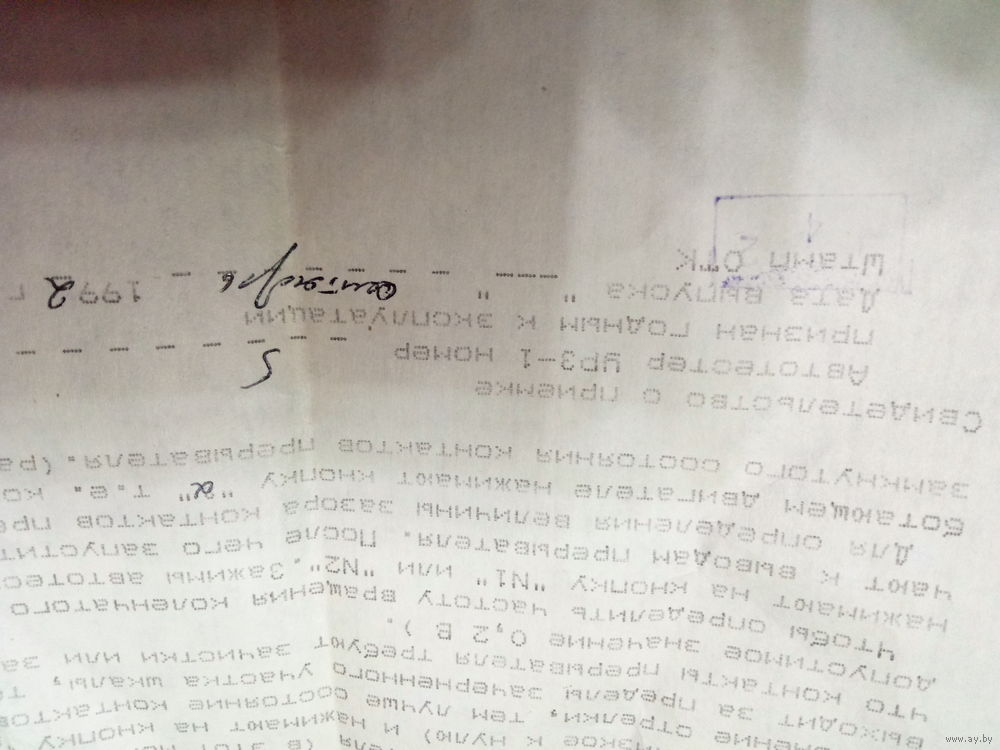 теля (в этот
нулю) и нажимают на кнопку
стрелки, тем лучше состояние контактов
выходит за пределы зачерненного участка шкалы, то
что контакты прерывателя требуют зачистки или за
допустимое значение 0,2 В ).
Чтобы определить частоту вращения коленчатого
нажимают на кнопку "N1" или "N2". Зажимы автотес
чают к выводам прерывателя. После чего запустит
Для определения величины зазора контактов пре
ботающем двигателе нажимают кнопку "α" т.е. ко
замкнутого состояния контактов прерывателя. (ра
Свидетельство о приемке
Автотестер УРЗ-1 номер 5
признан годным к эксплуатации
Дата выпуска " " сентябрь 1992 г
Штамп ОТК
www.ay.by